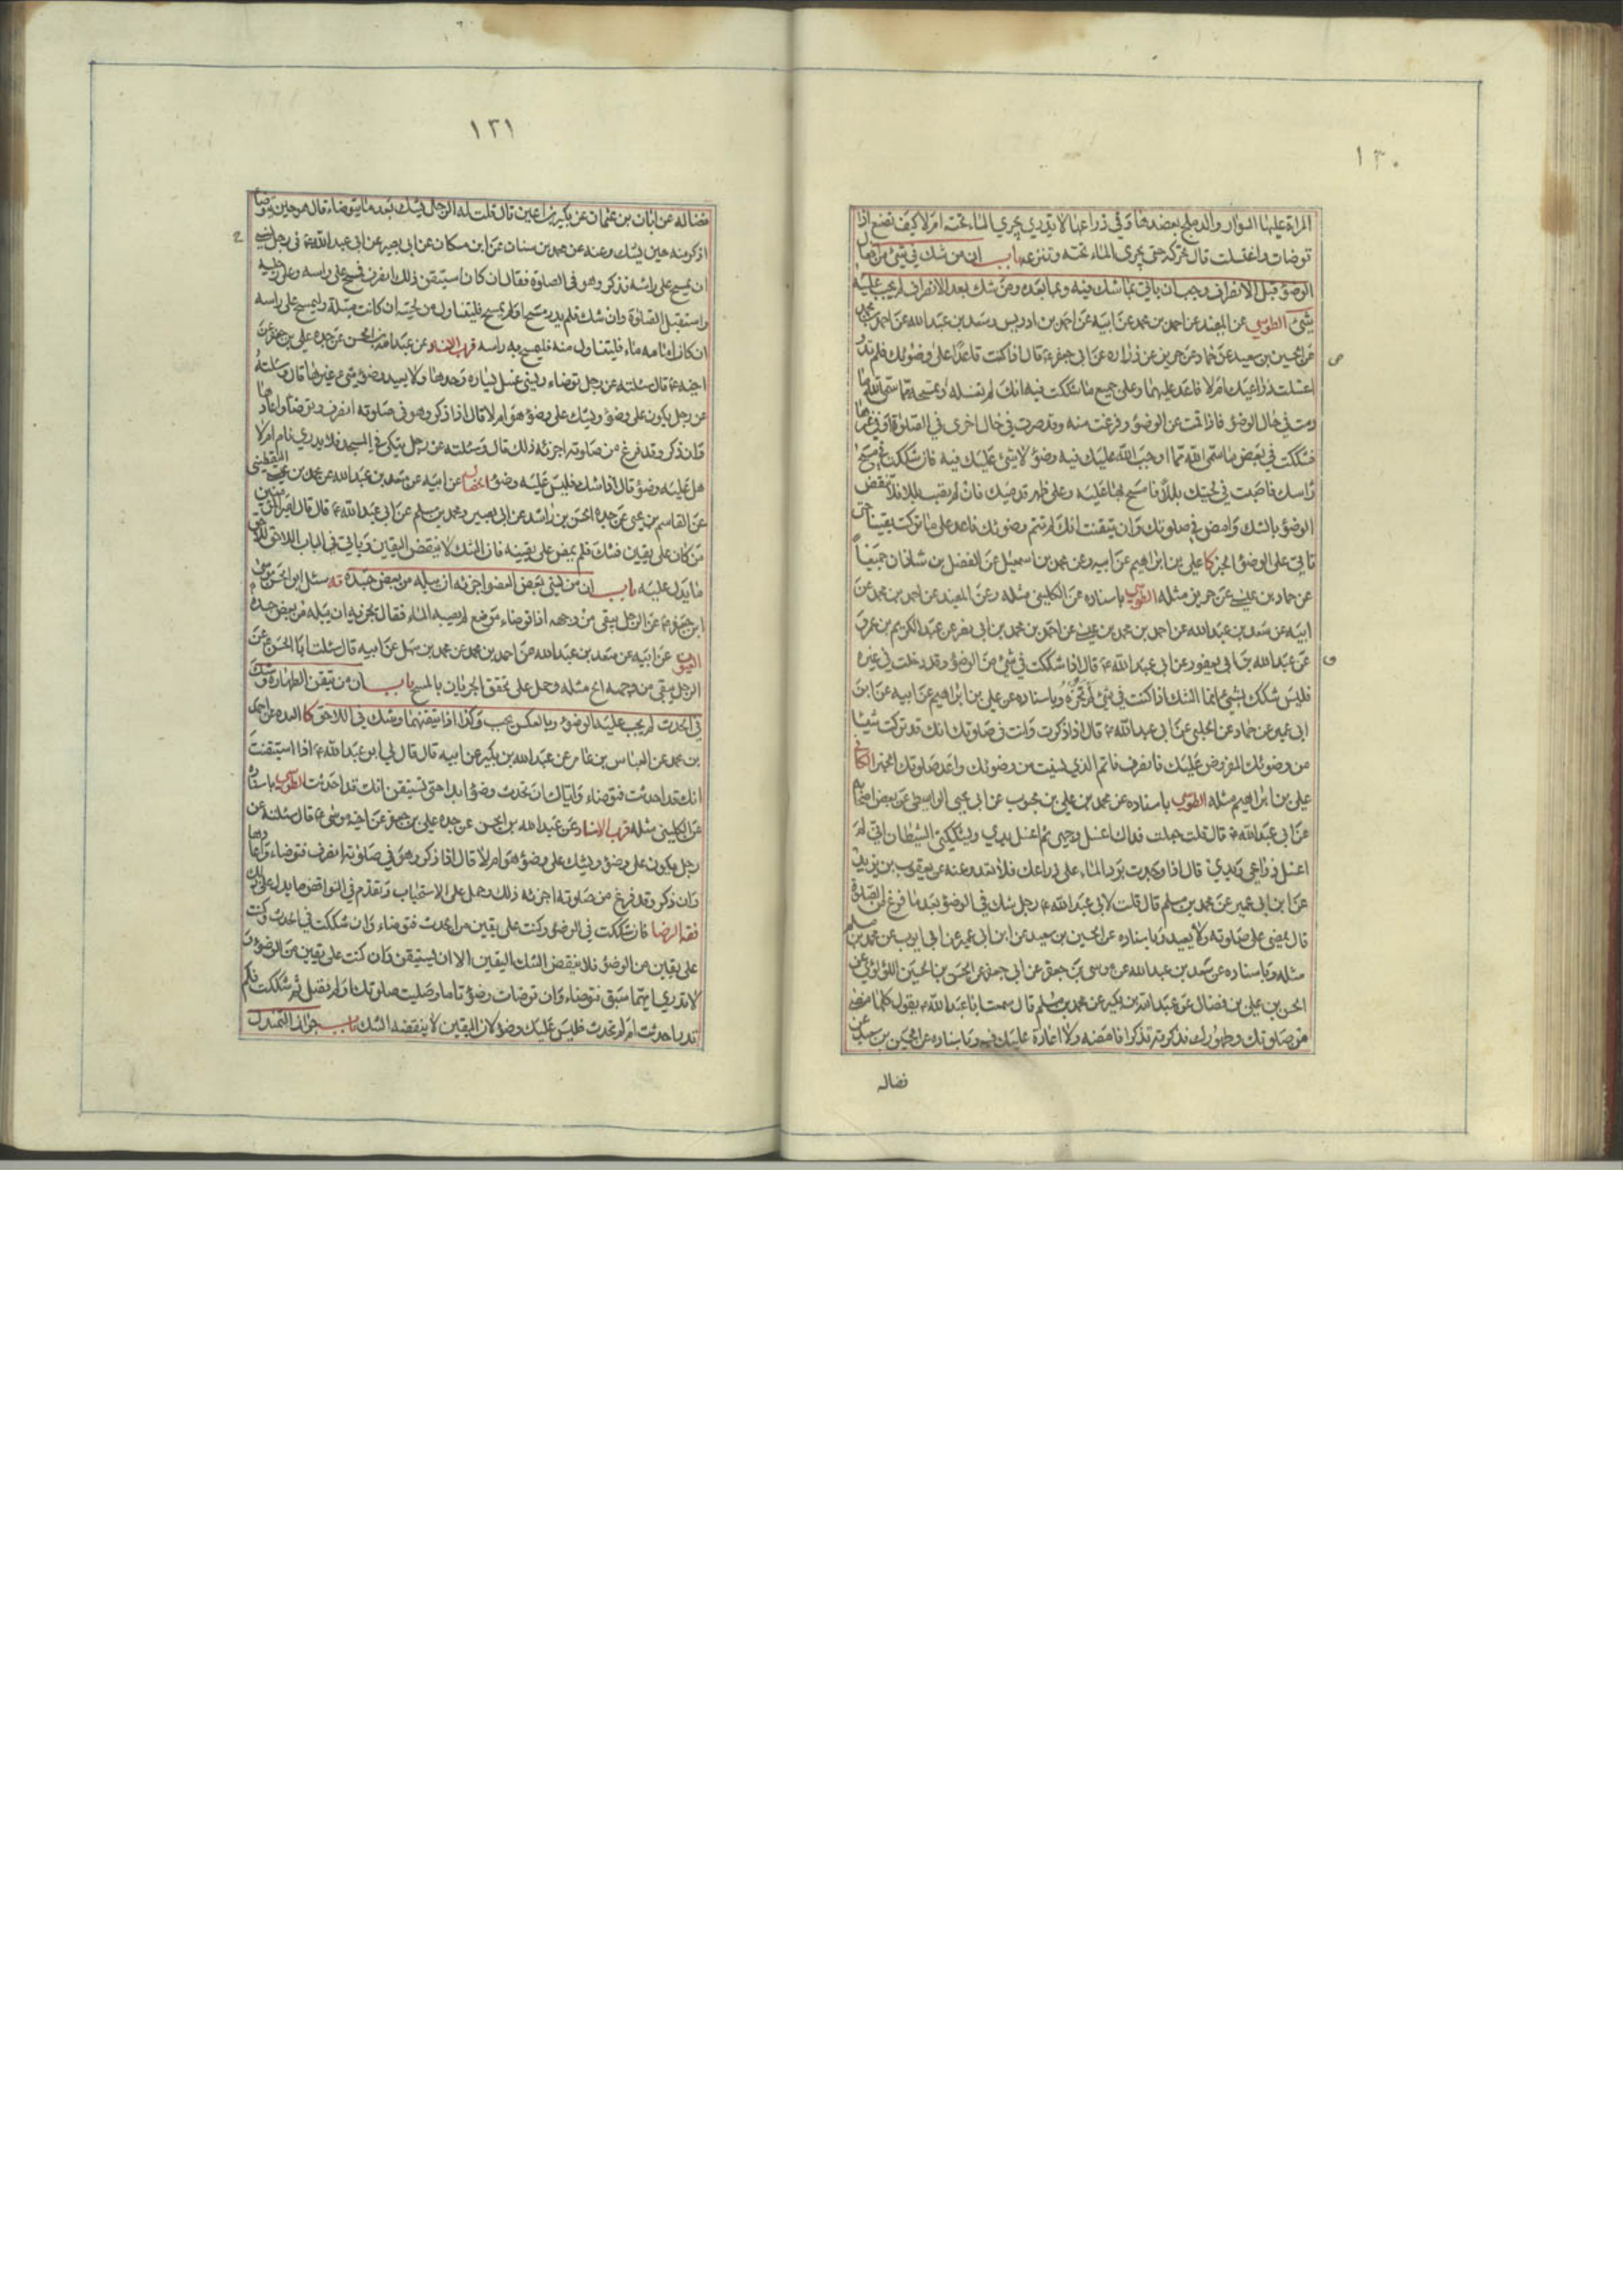 ١٣٠
المراة عليها السوار والدملج بعضدها وفي ذراعها لا تدري يجري الماء تحته ام لا كيف تصنع اذا
توضات او اغتسلت قال تحركه حتى يجري الماء تحته وتنزعه باب ان من شك في شئ من افعال
الوضوء قبل الانصراف وجب ان ياتي بما شك فيه وبما بعده ومن شك بعد الانصراف لم يجب عليه
شئ الطوسي عن المفيد عن احمد بن محمد عن ابيه عن احمد بن ادريس وسعد بن عبد الله عن احمد بن محمد
عن الحسين بن سعيد عن حماد عن حريز عن زرارة عن ابي جعفر ع قال اذا كنت قاعدا على وضوئك فلم تدر
اغسلت ذراعيك ام لا فاعد عليهما وعلى جميع ما شككت فيه انك لم تغسله او تمسحه مما سمى الله ما
دمت في حال الوضوء فاذا قمت عن الوضوء وفرغت منه وقد صرت في حال اخرى في الصلوة او في غيرها
فشككت في بعض ما سمى الله مما اوجب الله عليك فيه وضوء لا شئ عليك فيه فان شككت في مسح
راسك فاصبت في لحيتك بللا فامسح بها عليه وعلى ظهر قدميك فان لم تصب بللا فلا تنقض
الوضوء بالشك وامض في صلوتك وان تيقنت انك لم تتم وضوئك فاعد على ما تركت يقينا حتى
تاتي على الوضوء الخبر كا علي بن ابراهيم عن ابيه وعن محمد بن اسمعيل عن الفضل بن شاذان جميعاً
عن حماد بن عيسى عن حريز مثله الطوسي باسناده عن الكليني مثله وعن المفيد عن احمد بن محمد عن
ابيه عن سعد بن عبد الله عن احمد بن محمد بن عيسى عن احمد بن محمد بن ابي نصر عن عبد الكريم بن عمرو
عن عبد الله بن ابي يعفور عن ابي عبد الله ع قال اذا شككت في شئ من الوضوء وقد دخلت في غيره
فليس شكك بشئ انما الشك اذا كنت في شئ لم تجزه وباسناده عن علي بن ابراهيم عن ابيه عن ابن
ابي عمير عن حماد عن الحلبي عن ابي عبد الله ع قال اذا ذكرت وانت في صلوتك انك قد تركت شيئا
من وضوئك المفروض عليك فانصرف فاتم الذي نسيت من وضوئك واعد صلوتك الخبر الكافي
علي بن ابراهيم مثله الطوسي باسناده عن محمد بن علي بن محبوب عن ابي يحيى الواسطي عن بعض اصحابه
عن ابي عبد الله ع قال قلت جعلت فداك اغسل وجهي ثم اغسل يدي ويشككني الشيطان اني لم
اغسل ذراعي ويدي قال اذا وجدت برد الماء على ذراعك فلا تعد وعنه عن يعقوب بن يزيد
عن ابن ابي عمير عن محمد بن مسلم قال قلت لابي عبد الله ع رجل شك في الوضوء بعد ما فرغ من الصلوة
قال يمضي على صلوته ولا يعيد وباسناده عن الحسين بن سعيد عن ابن ابي عمير عن ابي ايوب عن محمد بن مسلم
مثله وباسناده عن سعد بن عبد الله عن موسى بن جعفر عن ابي جعفر عن الحسن بن الحسين اللؤلؤي عن
الحسن بن علي بن فضال عن عبد الله بن بكير عن محمد بن مسلم قال سمعت ابا عبد الله ع يقول كلما مضى
من صلوتك وطهورك فذكرته تذكرا فامضه ولا اعادة عليك فيه وباسناده عن الحسين بن سعيد عن
فضاله
١٣١
فضاله عن ابان بن عثمان عن بكير بن اعين قال قلت له الرجل يشك بعد ما يتوضاء قال هو حين يتوضا
اذكر منه حين يشك وعنه عن محمد بن سنان عن ابن مسكان عن ابي بصير عن ابي عبد الله ع في رجل نسي
ان يمسح على راسه فذكر وهو في الصلوة فقال ان كان استيقن ذلك انصرف فمسح على راسه وعلى رجليه
واستقبل الصلوة وان شك فلم يدر مسح او لم يمسح فليتناول من لحيته ان كانت مبتلة وليمسح على راسه
ان كان امامه ماء فليتناول منه فليمسح به راسه قرب الاسناد عن عبد الله بن الحسن عن جده علي بن جعفر عن
اخيه ع قال سئلته عن رجل توضاء ونسي غسل يساره قال يغسل يساره وحدها ولا يعيد وضوء شئ غيرها قال وسئلته
عن رجل يكون على وضوء ويشك على وضوء هو ام لا قال اذا ذكر وهو في صلوته انصرف وتوضا واعادها
وان ذكر وقد فرغ من صلوته اجزئه ذلك قال وسئلته عن رجل يتكئ في المسجد فلا يدري نام ام لا
هل عليه وضوء قال اذا شك فليس عليه وضوء الخصال عن ابيه عن سعد بن عبد الله عن محمد بن عيسى اليقطيني
عن القاسم بن يحيى عن جده الحسن بن راشد عن ابي بصير ومحمد بن مسلم عن ابي عبد الله ع قال قال امير المؤمنين
من كان على يقين فشك فليمض على يقينه فان الشك لا ينقض اليقين وياتي في الباب اللاحق للاحق
ما يدل عليه باب ان من نسي بعض العضو اجزئه ان يبله من بعض جسده يه سئل ابو الحسن موسى
ابن جعفر ع عن الرجل يبقى من وجهه اذا توضاء موضع لم يصبه الماء فقال يجزيه ان يبله من بعض جسده
العيون عن ابيه عن سعد بن عبد الله عن احمد بن محمد عن محمد بن سهل عن ابيه قال سئلت ابا الحسن ع عن
الرجل يبقى من وجهه الخ مثله وحمل على تحقق الجريان بالمسح باب ان من تيقن الطهارة وشك
في الحدث لم يجب عليه الوضوء وبالعكس يجب وكذا اذا تيقنهما وشك في اللاحق كا العدة عن احمد
بن محمد عن العباس بن عامر عن عبد الله بن بكير عن ابيه قال قال لي ابو عبد الله ع اذا استيقنت
انك قد احدثت فتوضاء واياك ان تحدث وضوء ابدا حتى تستيقن انك قد احدثت الطوسي باسناده
عن الكليني مثله قرب الاسناد عن عبد الله بن الحسن عن جده علي بن جعفر عن اخيه موسى ع قال سئلته عن
رجل يكون على وضوء ويشك على وضوء هو ام لا قال اذا ذكر وهو في صلوته انصرف فتوضاء واعادها
وان ذكر وقد فرغ من صلوته اجزئه ذلك وحمل على الاستحباب وتقدم في النواقض ما يدل على ذلك
فقه الرضا فان شككت في الوضوء وكنت على يقين من الحدث فتوضاء وان شككت في الحدث وكنت
على يقين من الوضوء فلا ينقض الشك اليقين الا ان تستيقن وان كنت على يقين من الوضوء و
لا تدري ايهما سبق فتوضاء وان توضات وضوء تاما وصليت صلوتك او لم تصل ثم شككت فلم
تدر احدثت ام لم تحدث فليس عليك وضوء لان اليقين لا ينقضه الشك باب جواز التمندل